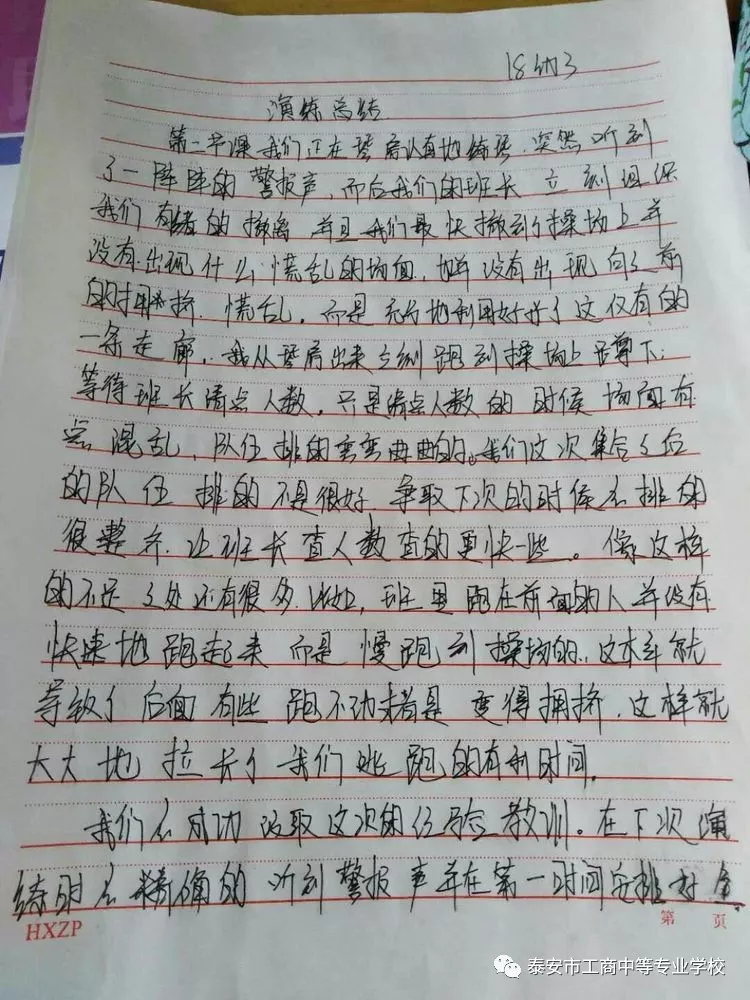 18纳3
演练总结
第二节课我们正在琴房认真地练琴,突然听到
了一阵阵的警报声,而后我们的班长立刻组织
我们有绪的撤离并且我们最快撤到了操场上并
没有出现什么慌乱的场面,也并没有出现向之前
的拥挤.慌乱,而是充分地利用好好了这仅有的
一条走廊,我从琴房出来立刻跑到操场上蹲下;
等待班长清点人数,只是清点人数的时候场面有
点混乱,队伍排的弯弯曲曲的。我们这次集合之后
的队伍排的不是很好,争取下次的时候排的
很整齐.让班长查人数查的更快一些。像这样
的不足之处还有很多.比如,班里跑在前面的人并没有
快速地跑起来而是慢跑到操场的.这样就
导致了后面有些跑不动或者是变得拥挤.这样就
大大地拉长了我们逃跑的有利时间.
我们成功汲取这次的经验教训。在下次演
练时精确的听到警报声并在第一时间安排好
HXZP
第 页
泰安市工商中等专业学校